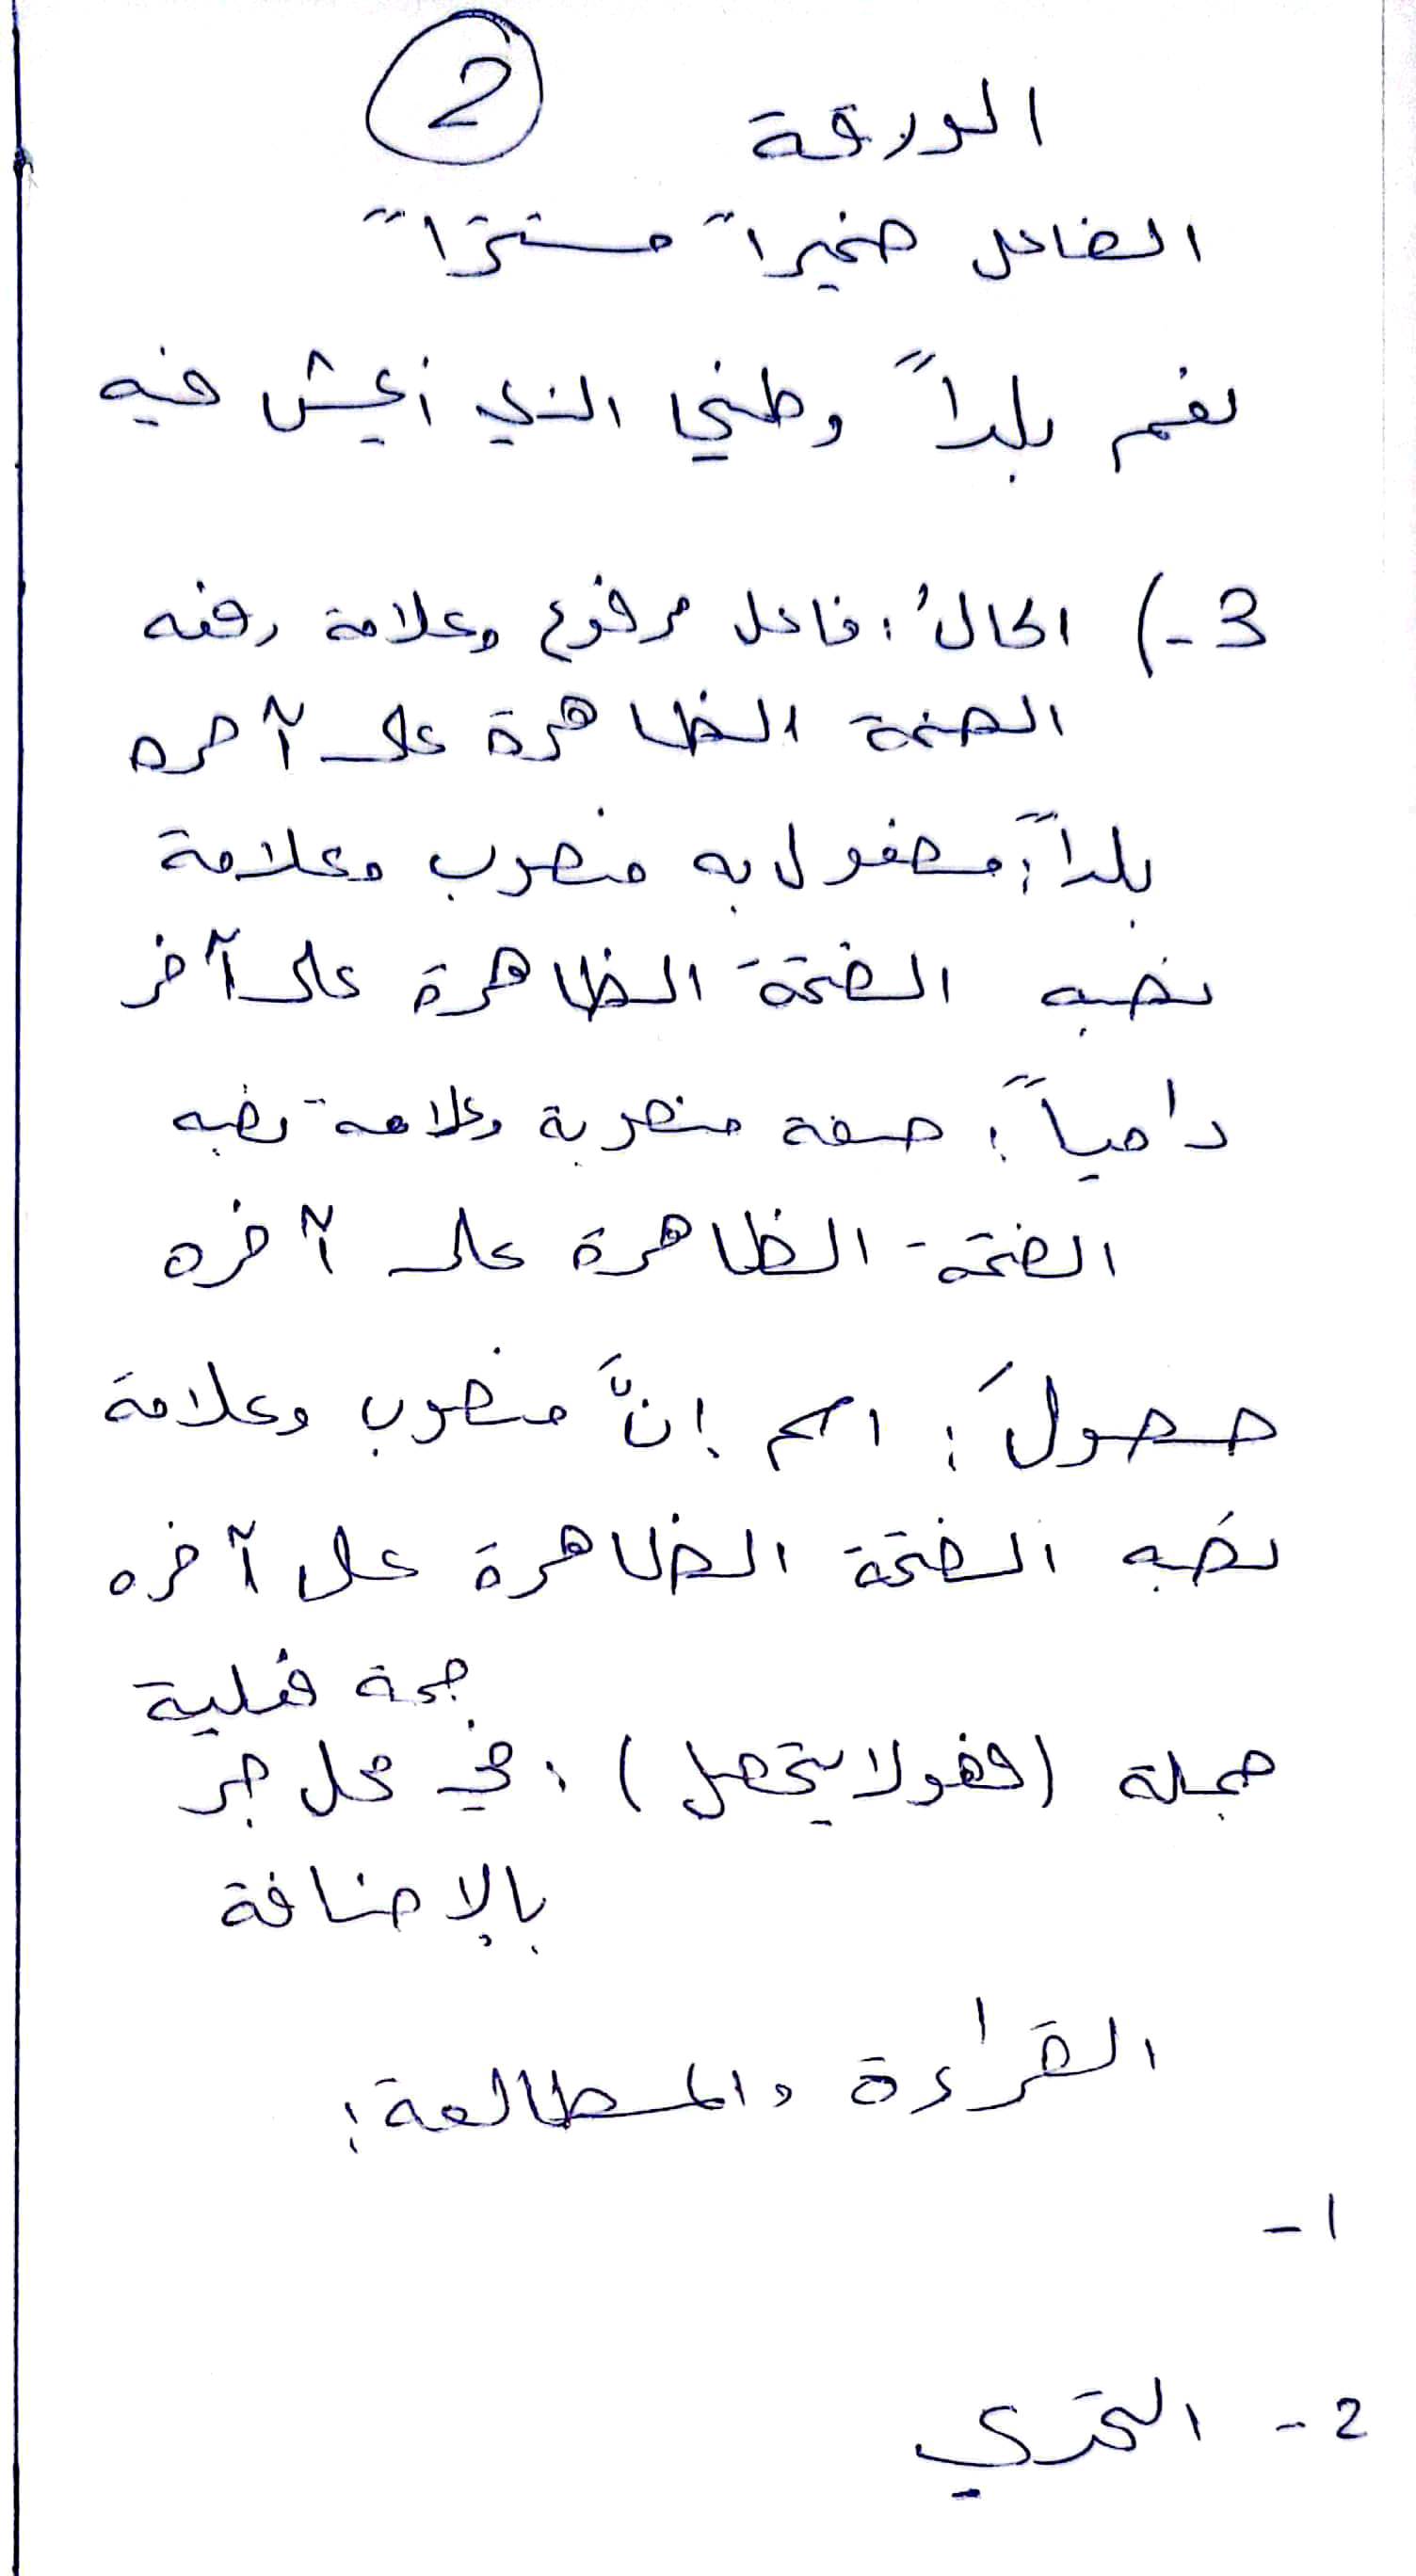 الورقة 2
الفاعل ضميراً مستتراً
نعم بلداً وطني الذي أعيش فيه
3-) الحالُ: فاعل مرفوع وعلامة رفعه
الضمة الظاهرة على آخره
بلداً: مفعول به منصوب وعلامة
نصبه الفتحة الظاهرة على آخر
دامياً: صفة منصوبة وعلامة نصبه
الفتحة الظاهرة على آخره
حصولَ: اسم إنَّ منصوب وعلامة
نصبه الفتحة الظاهرة على آخره
جملة فعلية
جملة (فهو لا يتحصل): في محل جر
بالإضافة
القراءة والمطالعة:
1-
2- التحري